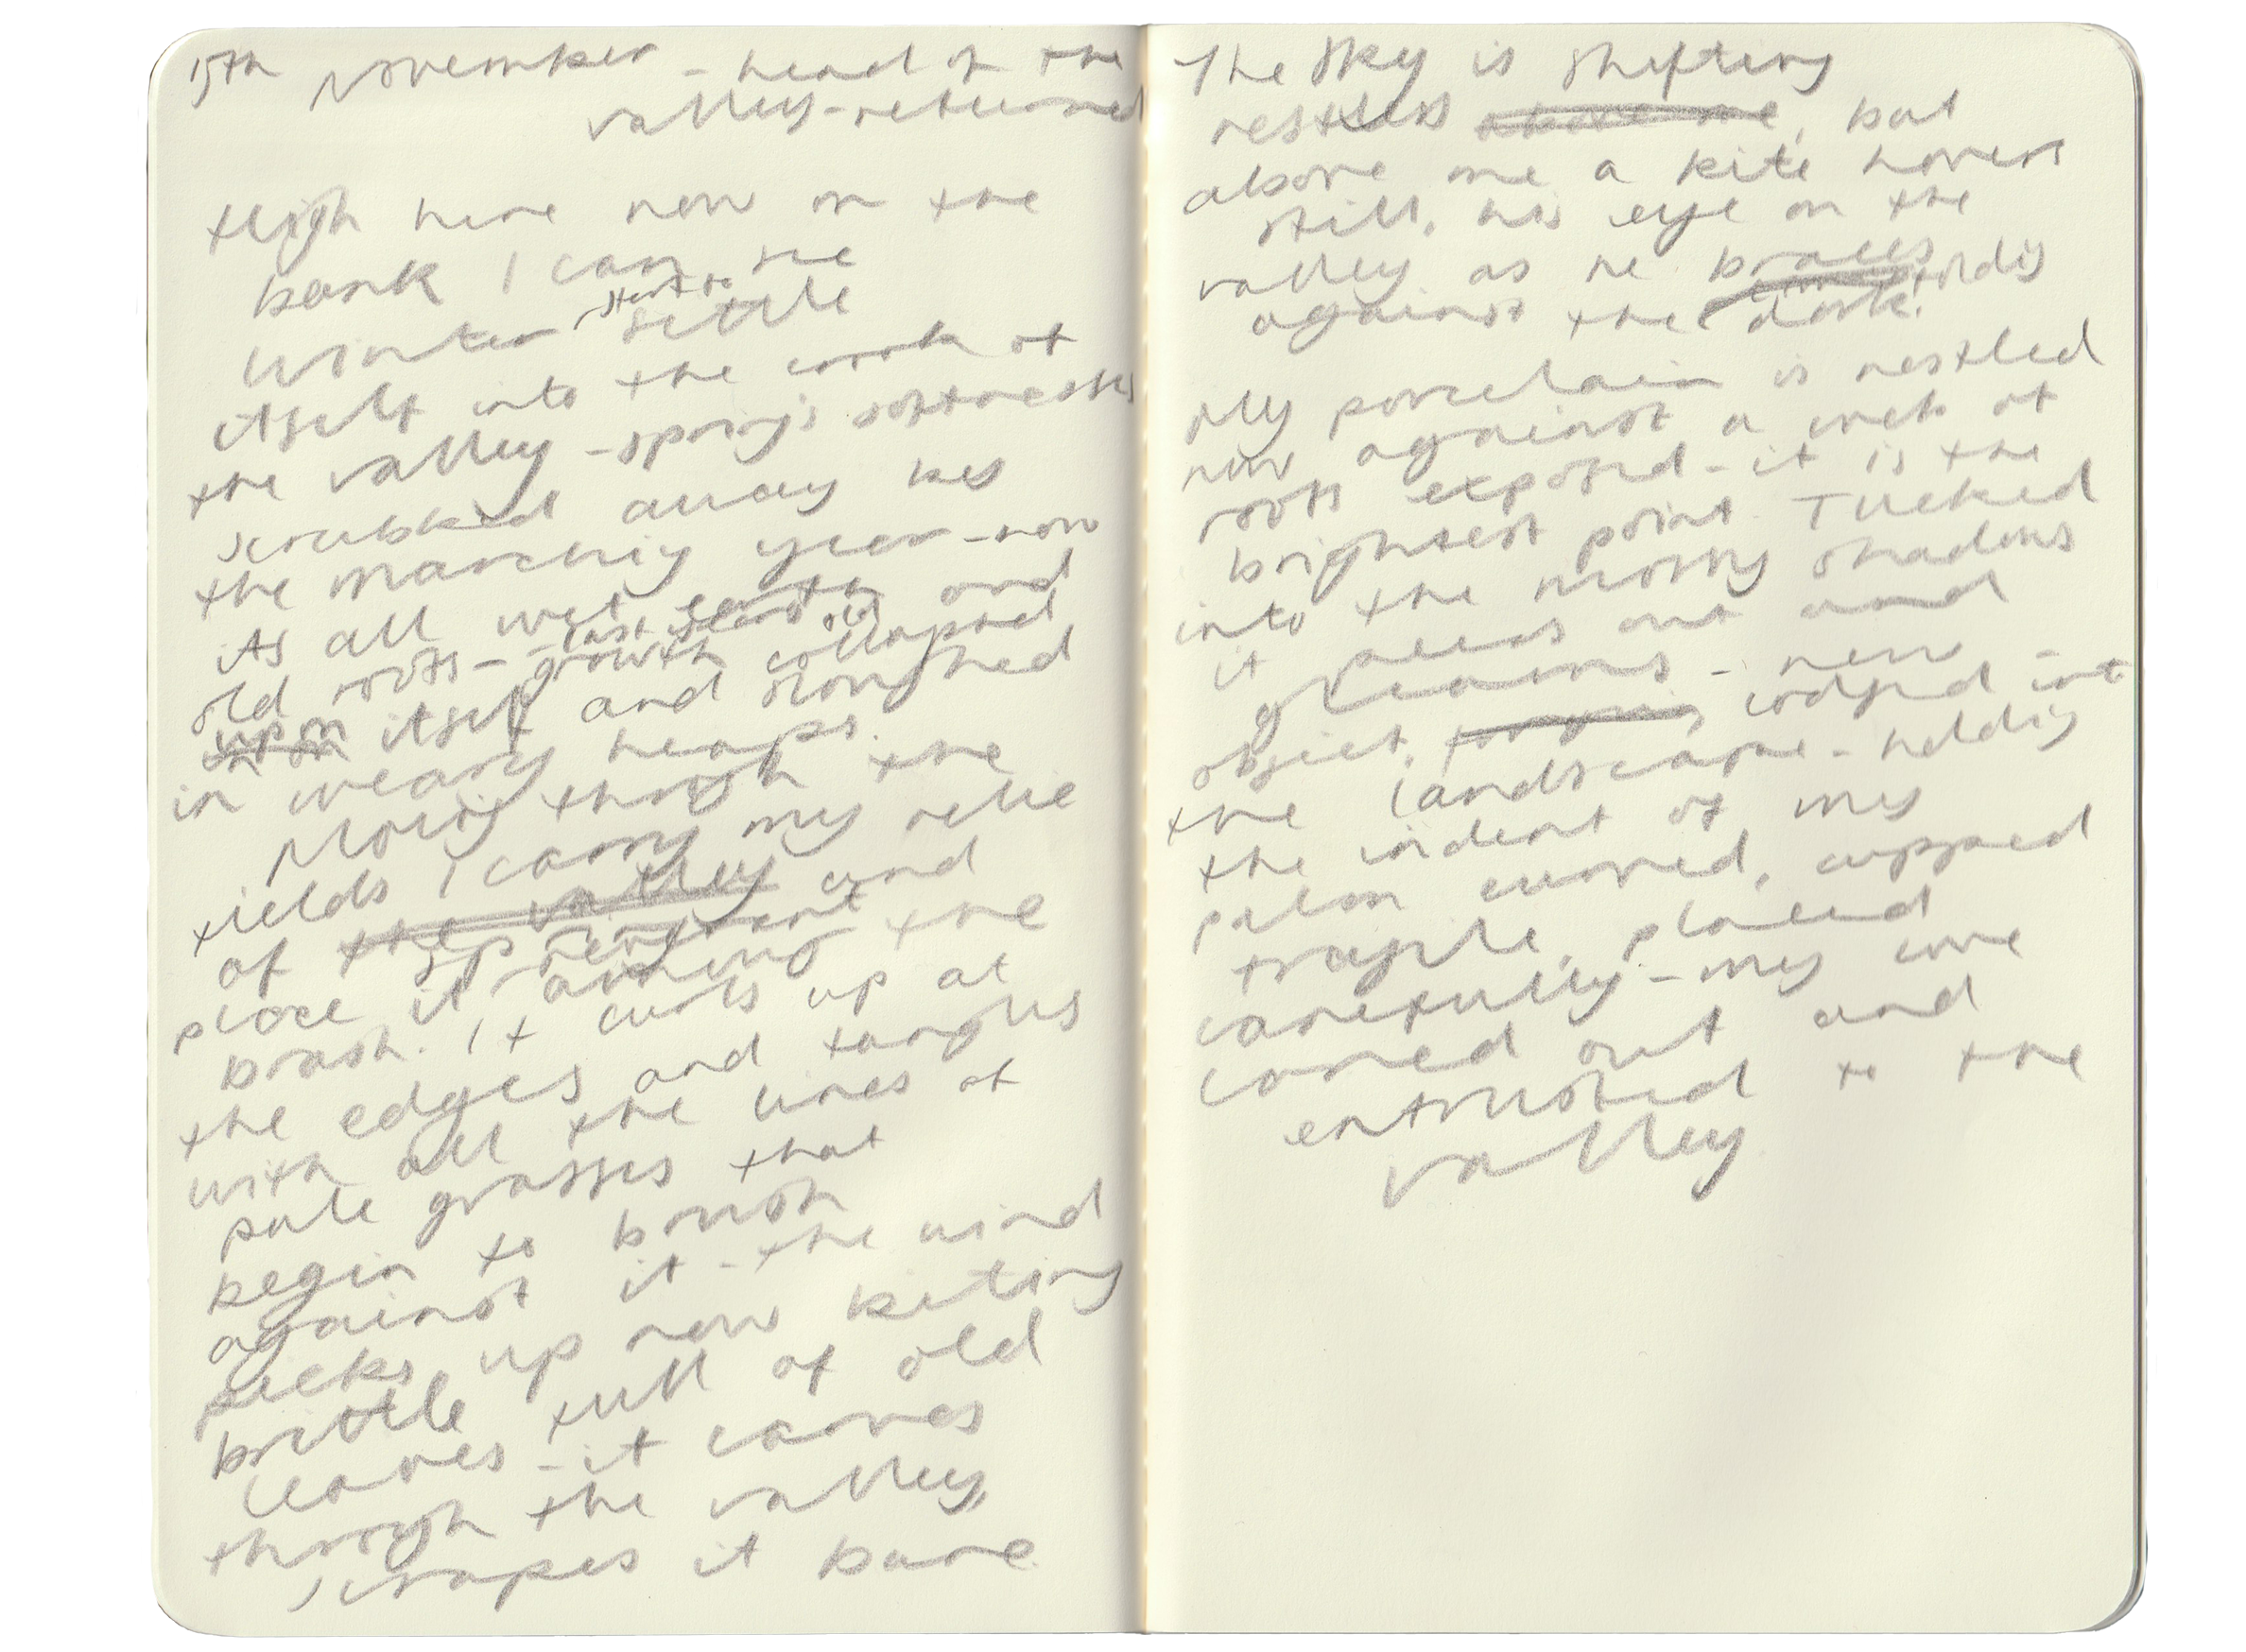 15th November - head of the
valley - returned
High here now on the
bank I can see
winter start to settle
itself into the crook of
the valley - spring's softnesses
scrubbed away by
the marching year - now
its all wet earth and
old roots - last years old
growth collapsed
upon itself and sloughed
in weary heaps.
Moving through the
fields I carry my relic
of the valley and
place it among the
brash. It curls up at
the edges and tangles
with all the lines of
pale grasses that
begin to brush
against it - the wind
picks up now kiting
brittle full of old
leaves - it carves
through the valley,
scrapes it bare
The sky is shifting
restless above me, but
above me a kite hovers
still, his eye on the
valley as he braces
against the dark.
My porcelain is nestled
now against a web of
roots exposed - it is the
brightest point. Tucked
into the mossy shadows
it peers out and
gleams - new
object, lodged into
the landscape - holding
the indent of my
palm curved, cupped
fragile, placed
carefully - my core
carved out and
entrusted to the
valley